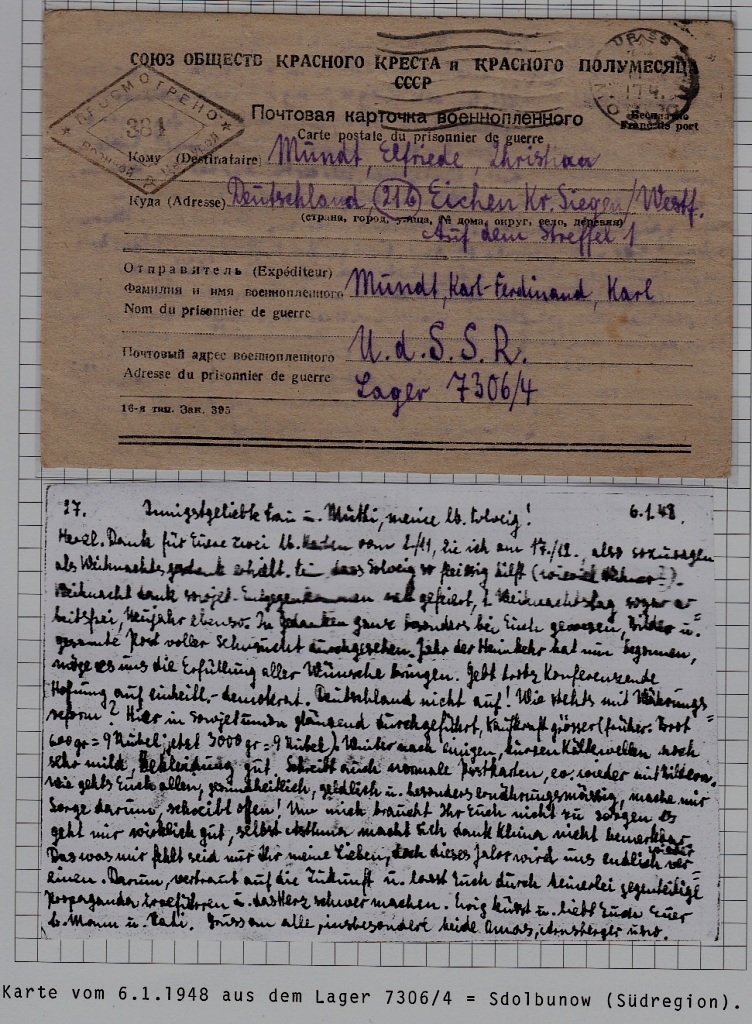 СОЮЗ ОБЩЕСТВ КРАСНОГО КРЕСТА и КРАСНОГО ПОЛУМЕСЯЦА
СССР
ПРОСМОТРЕНО
381
Почтовая карточка военнопленного
Carte postale du prisonnier de guerre
Бесплатно
Franc de port
Кому (Destinataire) Mundt, Elfriede, Christian
Куда (Adresse) Deutschland, (21b) Eichen Kr. Siegen/Westf.
(страна, город, улица, № дома, округ, село, деревня)
Auf dem Streffel 1
Отправитель (Expéditeur)
Фамилия и имя военнопленного Mundt, Karl-Ferdinand, Karl
Nom du prisonnier de guerre
Почтовый адрес военнопленного U.d.S.S.R.
Adresse du prisonnier de guerre Lager 7306/4
16-я тип. Зак. 395
27. Innigstgeliebte Frau u. Mutti, meine lb. Solveig! 6.1.48.
Herzl. Dank für Eure zwei lb. Karten vom 2./11, die ich am 17./12., also sozusagen
als Weihnachtsgedenk erhielt. dass Solveig so fleissig hilft
Weihnacht dank sowjet. Entgegenkommen gefeiert, 1. Weihnachtstag sogar ar=
beitsfrei, Neujahr ebenso. In Gedanken ganz besonders bei Euch gewesen, Bilder u.
gesamte Post voller Sehnsucht durchgesehen. Jahr der Heimkehr hat nun begonnen,
möge es uns die Erfüllung aller Wünsche bringen. Gebt trotz Konferenzende
Hofnung auf einheitl.-demokrat. Deutschland nicht auf! Wie stehts mit Währungs=
reform? Hier in Sowjetunion glänzend durchgeführt, Kaufkraft grösser (früher: Brot
600 gr = 9 Rubel; jetzt 3000 gr = 9 Rubel). Winter nach einigen, kurzen Kältewellen noch
sehr mild, Bekleidung gut. Schreibt auch normale Postkarten, ev. wieder mit Bildern,
wie gehts Euch allen, gesundheitlich, geldlich u. besonders ernährungsmässig, mache mir
Sorge darum, schreibt offen! Um mich braucht Ihr Euch nicht zu sorgen es
geht mir wirklich gut, selbst Asthma macht sich dank Klima nicht bemerkbar.
Das was mir fehlt seid nur Ihr meine Lieben, doch dieses Jahr wird uns endlich wieder ver=
einen. Darum, vertraut auf die Zukunft u. lasst Euch durch keinerlei gegenteilige
Propaganda irreführen u. das Herz schwer machen. Ewig küsst u. liebt Euch Euer
lb. Mann u. Vati. Gruss an alle, insbesondere beide Omas, Arnsberger usw.
Karte vom 6.1.1948 aus dem Lager 7306/4 = Sdolbunow (Südregion).